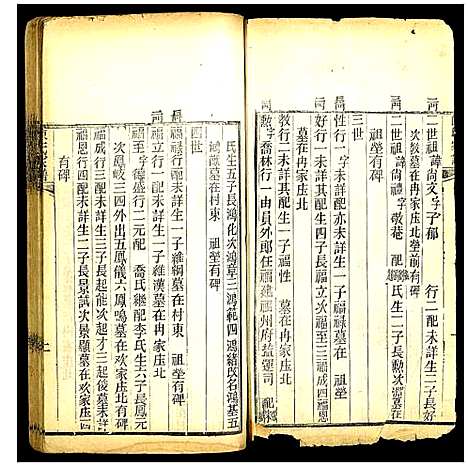 二世祖諱尚文字子郁 行一配未詳生二子長好
二世祖諱尚禮字敬菴 配 氏生二子長勲次
祖塋有碑
三世
好行一未詳其配亦未詳生一子福禄墓在冉家庄北
性行一字 未詳其配生四子長福立次福一三福成四福恩
墓在冉家庄北
教行二未詳其配生一子福性 墓在冉家庄北
勲字喬林行一由員外郎任福建福州府塩運司 配
氏生五子長鴻化次鴻草三鴻範四鴻緒改名鴻基五
鴻 墓在村東 祖塋有碑
四世
福禄行一配未詳生一子維綱墓在村東 祖塋有碑
福立行一配未詳生一子維漢墓在冉家庄北
福一字德盛行二元配喬氏継配李氏生六子長鳳元
次鳳岐三四外出五鳳儀六鳳鳴墓在冉家庄北有碑
福成行三配未詳生三子長起能次起才三起後墓在
福恩行四配未詳生二子長景誠次景顯墓在冉家庄北
有碑